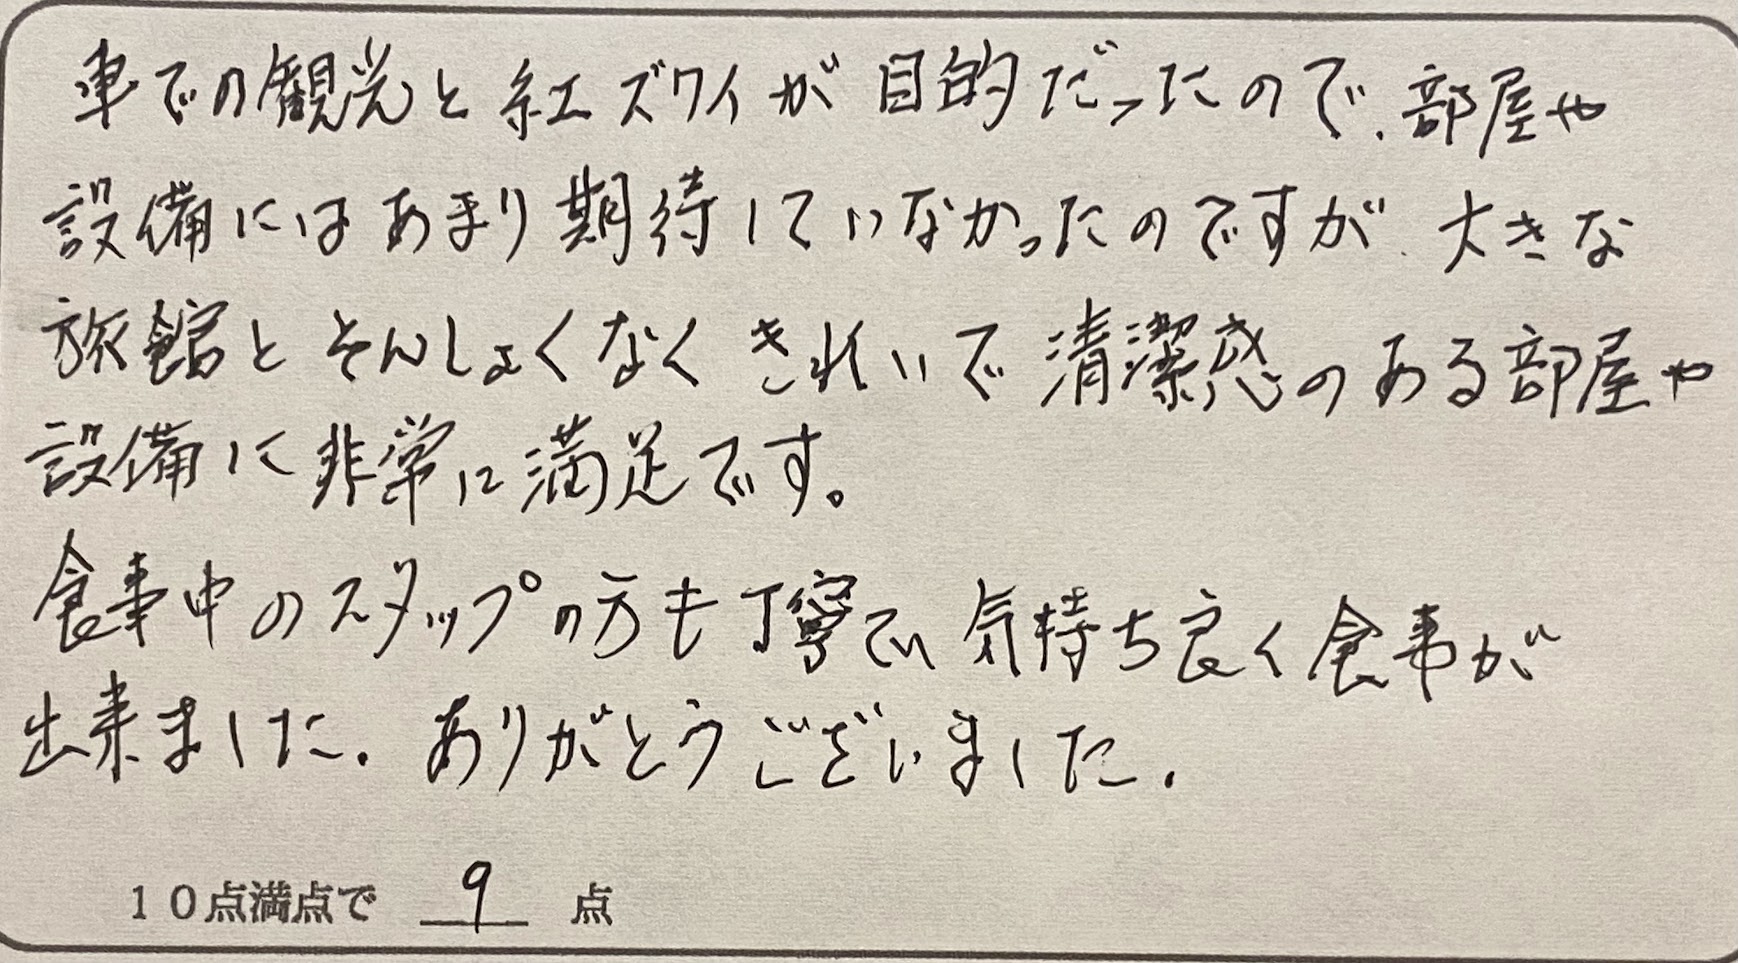 車での観光と紅ズワイが目的だったので、部屋や
設備にはあまり期待していなかったのですが、大きな
旅館とそんしょくなくきれいで清潔感のある部屋や
設備に非常に満足です。
食事中のスタッフの方も丁寧で、気持ち良く食事が
出来ました。ありがとうございました。
10点満点で 9 点